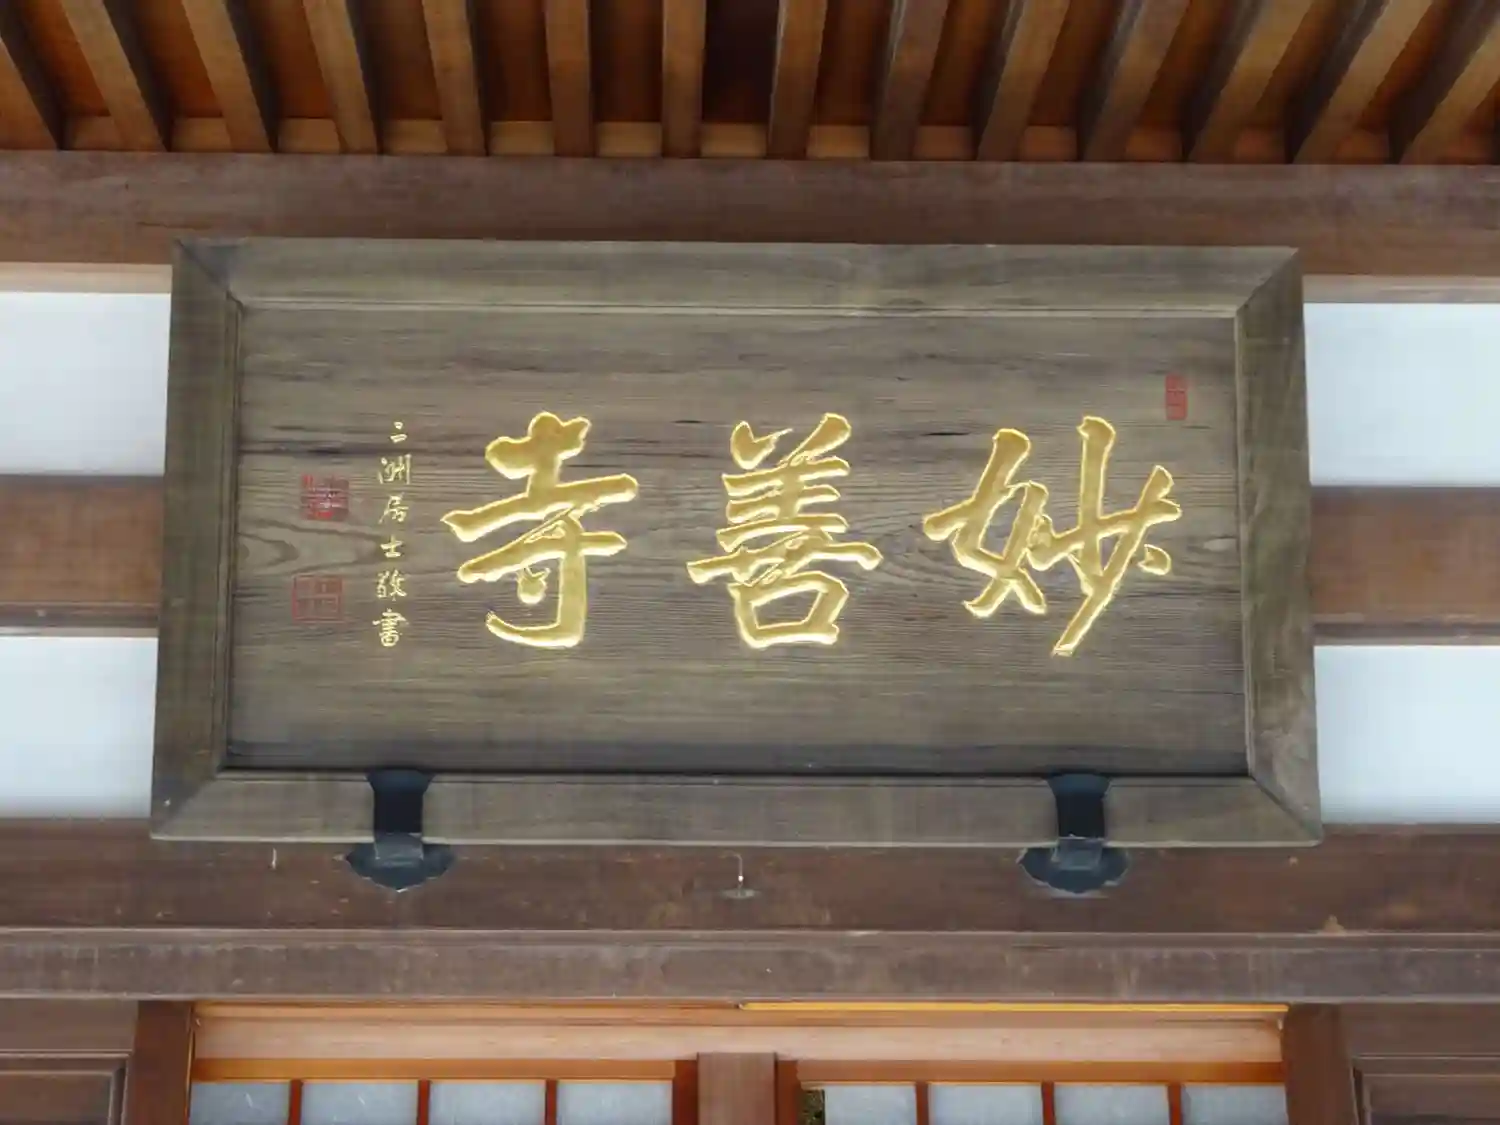 妙善寺
三洲居士敬書